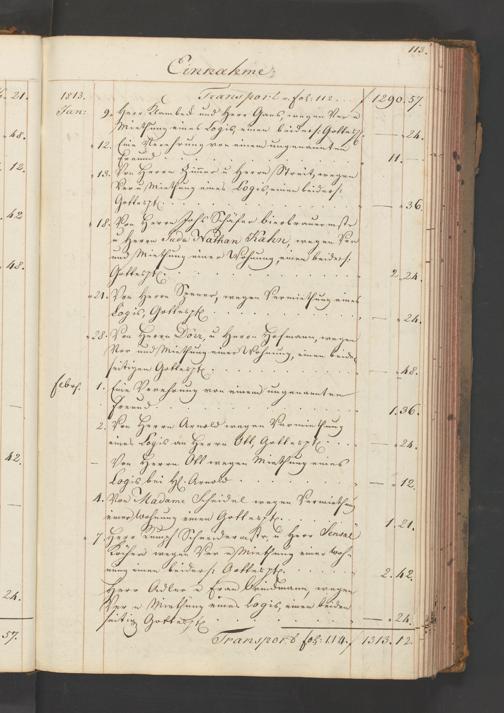 113.
Einnahme
1813. Transport v. fol: 112. f 1290. 57.
Jan: 9. Herr Kambeck und Herr Gans, wegen Ver u
Miethung eines Logis, einen beiders: Gottespf. — 24.
12. Eine Verehrung von einem ungenannten
Freund 11. —
13. Von Herrn Zimmer u Herrn Streitz, wegen
Ver u Miethung eines Logis, einen beiders:
Gottespf. — 36.
18. Von Herrn Johs Schäfer Bierbrauermstr
u Herrn Juda Nathan Kahn, wegen Ver
und Miethung einer Wohnung, einen beiders:
Gottespf. 2. 24.
21. Von Herrn wegen Vermiethung eines
Logis, Gottespf. — 24.
28. Von Herrn Dörr, u Herrn Hofmann, wegen
Ver und Miethung einer Wohnung, einen beider
seitigen Gottespf. — 48.
febr. 1. Eine Verehrung von einem ungenannten
Freund 1. 36.
2. Von Herrn Arnold wegen Vermiethung
eines Logis an Herrn Ott, Gottespf. — 24.
— Von Herrn Ott wegen Miethung eines
Logis bei H. Arnold — 12.
4. Von Madame Scheidel wegen Vermiethung
einer Wohnung einen Gottespf. 1. 21.
7. Herr Schneidermstr, u Herr Sensal
wegen Ver u Miethung einer Woh-
nung einen beiders: Gottespf. 2. 42.
Herr Adler u Frau Windmann, wegen
Ver u Miethung eines Logis, einen beider
seitig Gottespf. — 24.
Transport fol: 114. f 1313. 12.
21.
48.
12.
42
48.
42.
24.
57.